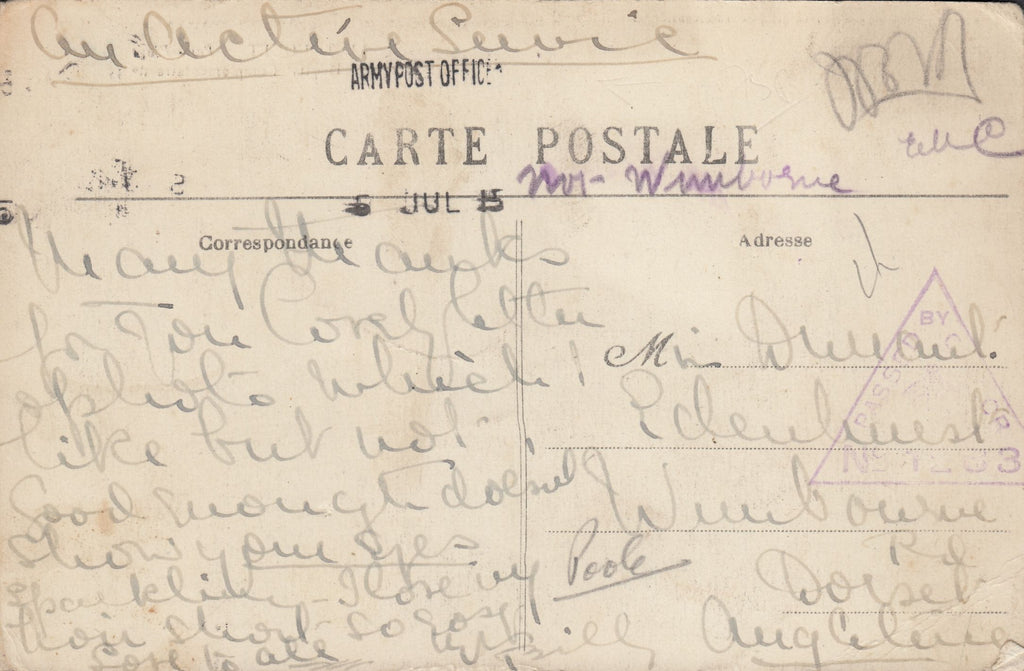 On Active Service
ARMY POST OFFICE
CARTE POSTALE
Not Wimborne
5 JUL 15
Correspondance
Adresse
Many thanks
for your lovely letter
& photo which I
like but not
Good enough doesn't
show your eyes
sparkling – I love my
hair short – so
Love to all
PASSED BY
No 1233
Miss
Edenhurst
Wimborne Rd
Poole
Dorset
Angleterre